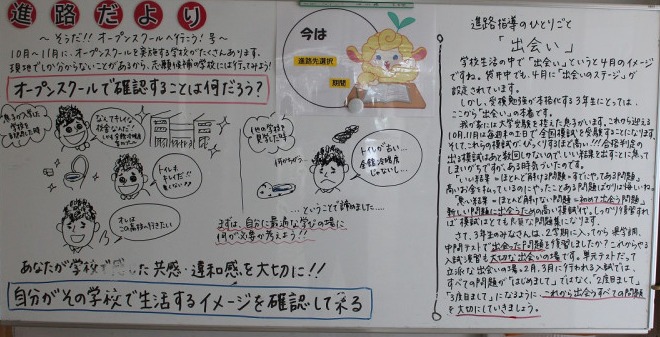 進路だより
～そうだ!! オープンスクールへ行こう! 号～
10月～11月に、オープンスクールを実施する学校がたくさんあります。
現地でしか分からないことがあるから、志願候補の学校には行ってみよう!
オープンスクールで確認することは何だろう?
なんてキレイな
校舎なんだ!
トイレも
キレイだ!!
臭くない??
オレは
この高校へ行きたい
トイレが古い…
全館冷暖房
じゃないし…
…ということで諦めました……
まずは、自分に最適な学びの場に
何が必要か考えよう!!
あなたが学校で感じた共感・違和感を大切に!!
自分がその学校で生活するイメージを確認して来る
今は
進路先選択
期間
進路指導のひとりごと
「出会い」
学校生活の中で“出会い”というと4月のイメージ
ですね。袋井中でも、4月に“出会いのステージ”が
設定されています。
しかし、受検勉強が本格化する3年生にとっては、
ここから“出会い”の本番です。
我が家には大学受験を控えた息子がいます。これから迎える
10月、11月は毎週末のように“全国模試”を受験することになります。
そして、これらの模試がびっくりするほど高い!!! 合格判定の
出る模試はあと数回しかないので、いい結果を出すことに焦って
しまいがちですが、ある時気づいたのです。
「いい結果=ほとんど解ける問題=すでにやってある問題」
高いお金を払っているのにやったことある問題ばかりは悔しいね。
「悪い結果=ほとんど解けない問題=初めて出会う問題」
新しい問題に出会うための高い模試代で、しっかり復習すれ
ば模試はとても良質な問題集になります。
さて、3年生のみなさんは、2学期に入ってから県学調、
中間テストで出会った問題を復習しましたか? これからやる
入試演習も大切な出会いの場です。単元テストだって
立派な出会いの場。2月、3月に行われる入試では、
すべての問題が「はじめまして」ではなく、「2度目まして」
「3度目まして」になるように、これから出会うすべての問題
を大切にしていきましょう。